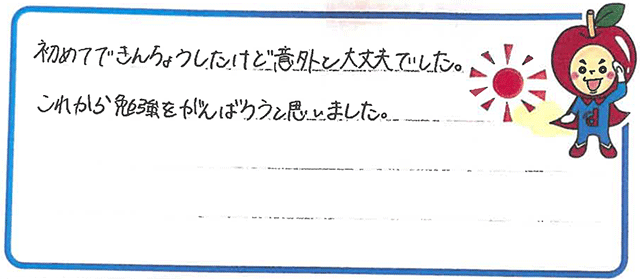 初めてできんちょうしたけど意外と大丈夫でした。
これから勉強をがんばろうと思いました。
d